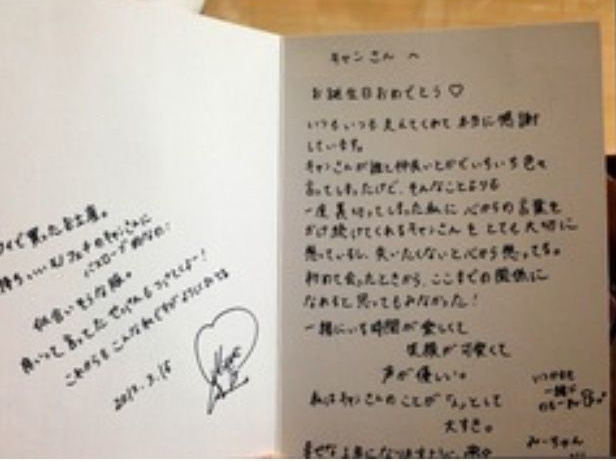 ワイで買ったお土産。
持ちいいモノフェチのキャンさんに
バスローブ的なの!
似合いそうな服。
良いって言ってた せっけんも
これからもこんな私ですがよろしくね
2012.3.15
キャンさん へ
お誕生日おめでとう♡
いつもいつも支えてくれて 本当に感謝
しています。
キャンさんが誰と仲良いとかでいちいち色々
言ってしまったけど、そんなことよりも
一度裏切ってしまった私に 心からの言葉を
かけ続けてくれるキャンさんを とても大切に
想っているし、失いたくないと心から想ってる。
初めて会ったときから、ここまでの関係に
なれると思ってもみなかった!
一緒にいる時間が愛しくて
笑顔が可愛くて
声が優しい。
私はキャンさんのことが 「人」として
大すき。
いつかまた
一緒に
のもーね
みーちゃん